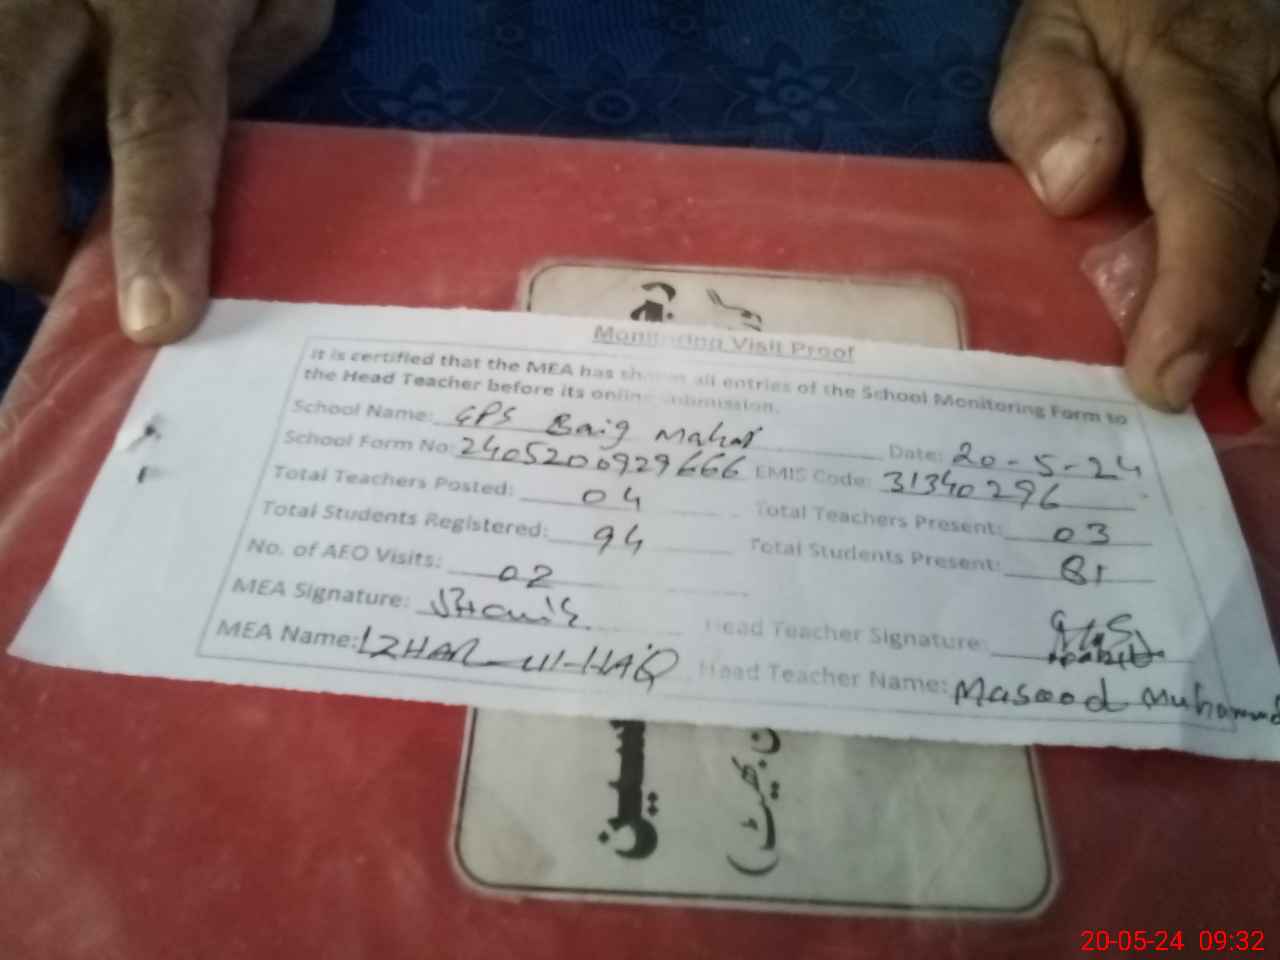 Monitoring Visit Proof
It is certified that the MEA has shown all entries of the School Monitoring Form to
the Head Teacher before its online submission.
School Name: GPS Baig Mahar Date: 20-5-24
School Form No: 2405200929666 EMIS Code: 31340296
Total Teachers Posted: 04 Total Teachers Present: 03
Total Students Registered: 94 Total Students Present: 81
No. of AEO Visits: 02
MEA Signature: Head Teacher Signature:
MEA Name: IZHAR-ul-HAQ Head Teacher Name: Masood Muhammd
20-05-24 09:32